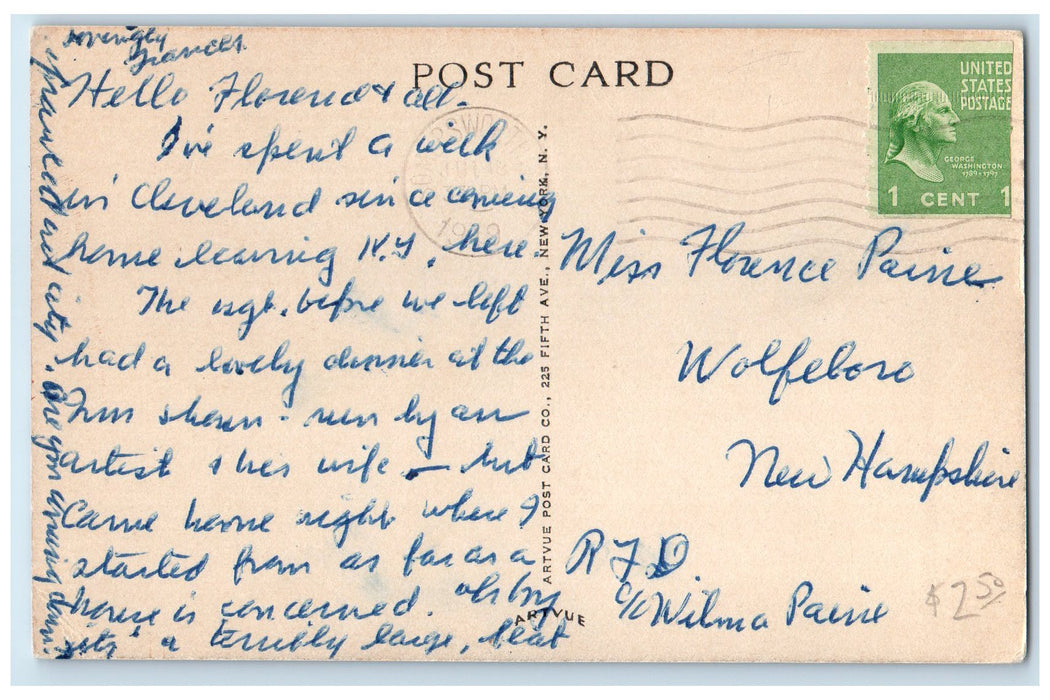 POST CARD
Hello Florence & all.
I've spent a week
in Cleveland since coming
home leaving N.Y. here.
The ngt. before we left
had a lovely dinner at the
Inn shown - run by an
artist & his wife - but
Came home right where I
started from as far as a
house is concerned.
it's a terribly large, flat
city. Are you coming down
Lovingly
Frances
ARTVUE POST CARD CO., 225 FIFTH AVE., NEW YORK, N. Y.
ARTVUE
UNITED
STATES
POSTAGE
GEORGE
WASHINGTON
1789-1797
1 CENT 1
Miss Florence Paine
Wolfeboro
New Hampshire
RFD
c/o Wilma Paine
$2.50